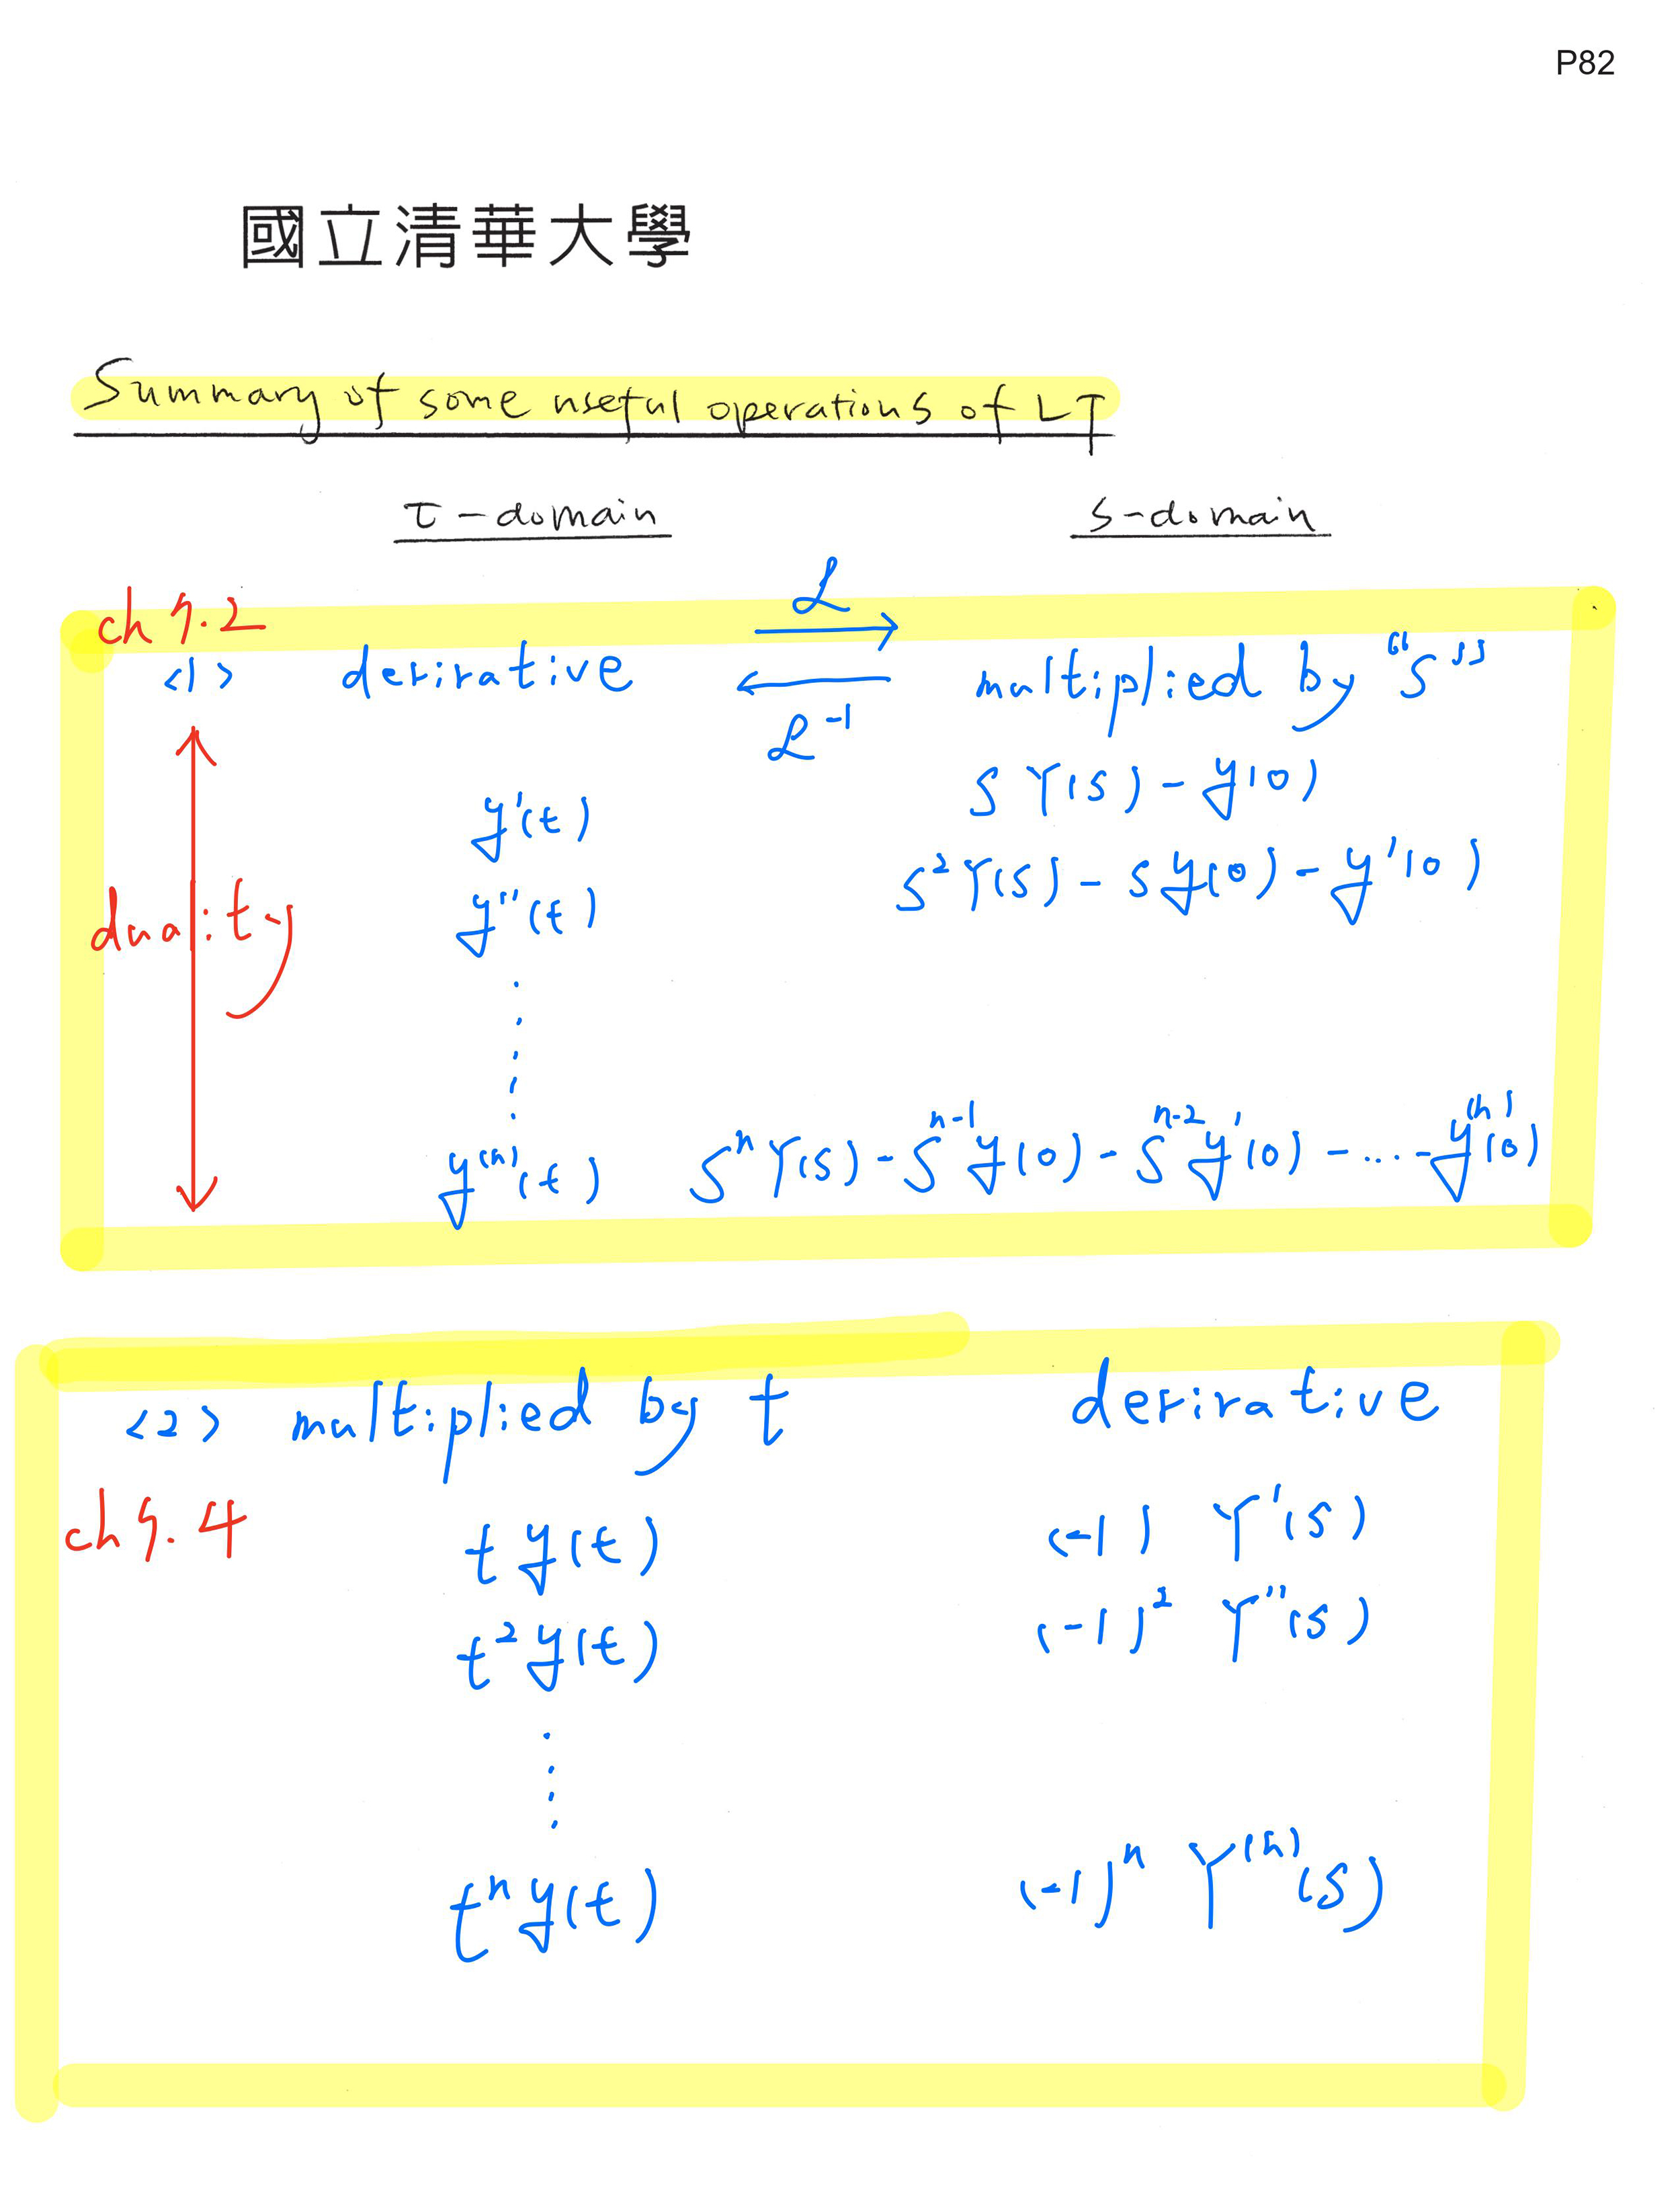 P82
國立清華大學
Summary of some useful operations of LT
t-domain s-domain
ch 7.2 ℒ
<1> derivative multiplied by "s"
ℒ⁻¹
y'(t) sY(s) - y(0)
y''(t) s²Y(s) - sy(0) - y'(0)
duality
y⁽ⁿ⁾(t) sⁿY(s) - sⁿ⁻¹y(0) - sⁿ⁻²y'(0) - .... - y⁽ⁿ⁾(0)
<2> multiplied by t derivative
ch 7.4
t y(t) (-1) Y'(s)
t² y(t) (-1)² Y''(s)
tⁿ y(t) (-1)ⁿ Y⁽ⁿ⁾(s)